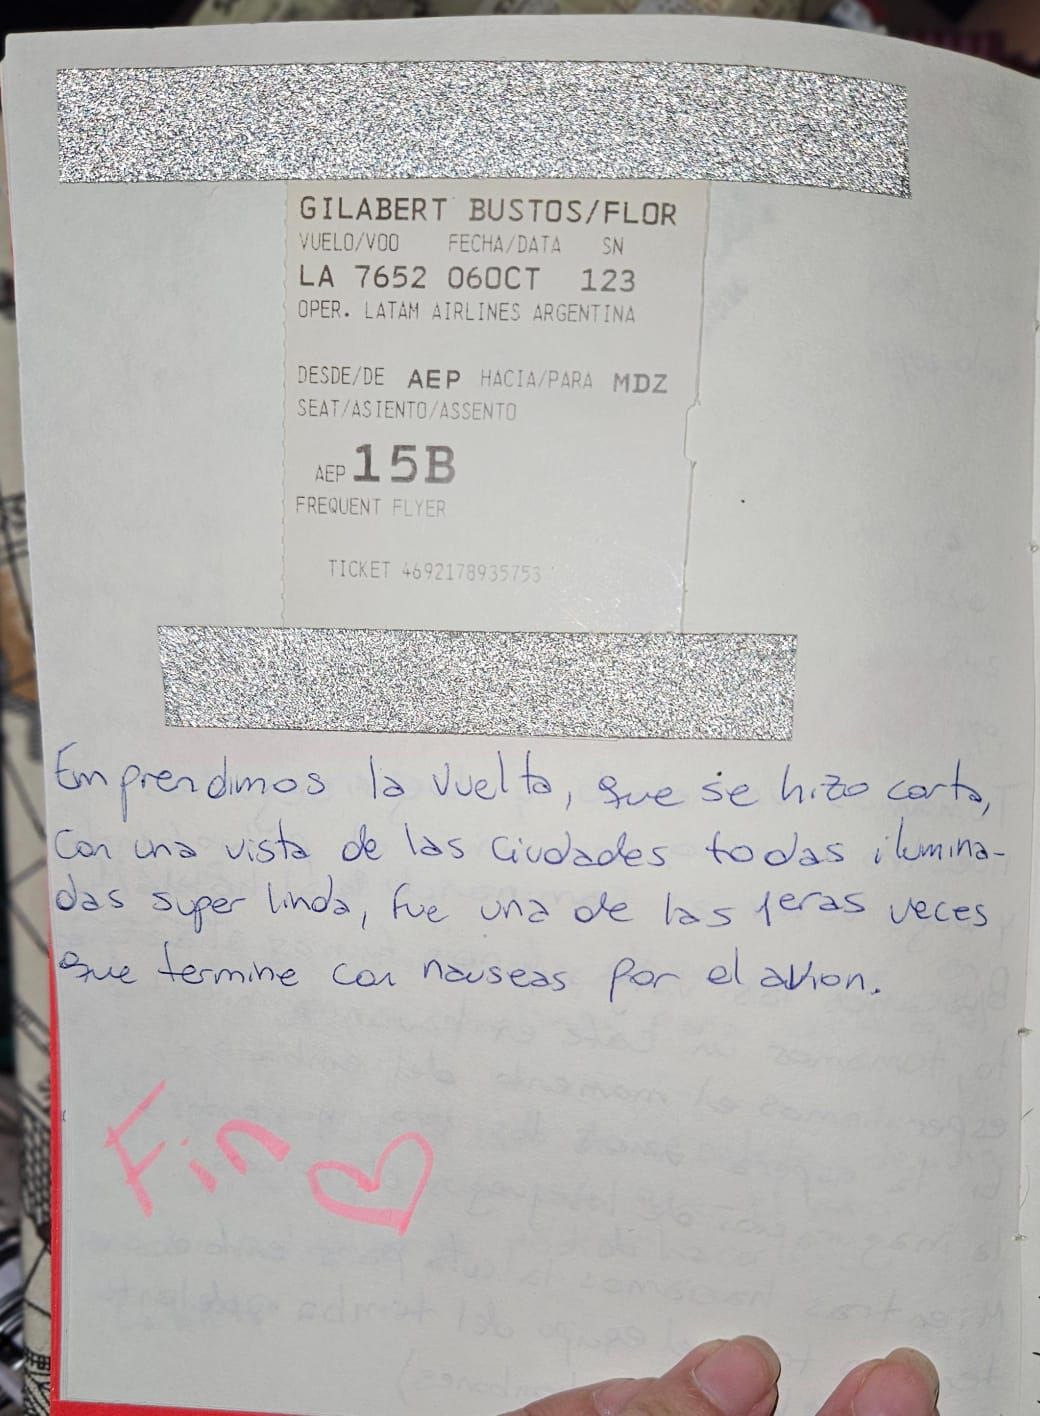 GILABERT BUSTOS/FLOR
VUELO/VOO FECHA/DATA SN
LA 7652 06OCT 123
OPER. LATAM AIRLINES ARGENTINA
DESDE/DE AEP HACIA/PARA MDZ
SEAT/ASIENTO/ASSENTO
AEP 15B
FREQUENT FLYER
TICKET 4692178935753
Emprendimos la vuelta, que se hizo corta,
con una vista de las ciudades todas ilumina-
das super linda, fue una de las 1eras veces
que termine con nauseas por el avion.
Fin